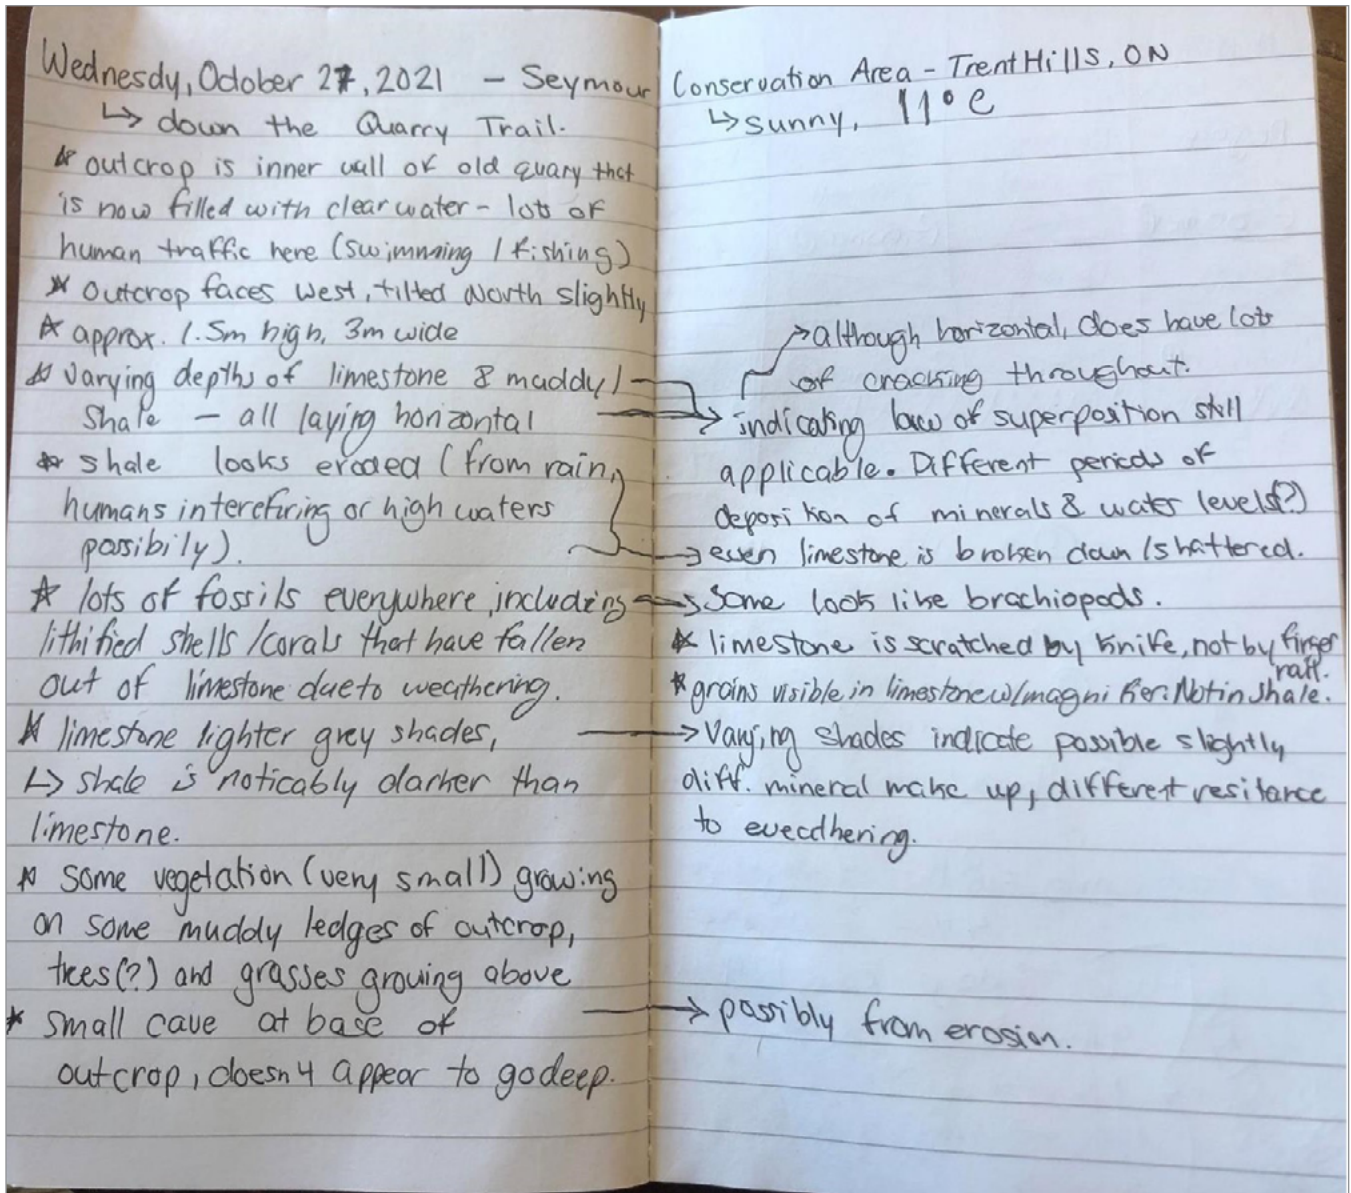 Wednesdy, October 27, 2021 — Seymour Conservation Area - Trent Hills, ON
↳ down the Quarry Trail.
* outcrop is inner wall of old quary that
is now filled with clear water - lots of
human traffic here (swimming / fishing)
* outcrop faces west, tilted North slightly
* approx. 1.5m high, 3m wide
* Varying depths of limestone & muddy/
Shale — all laying horizontal
* shale looks eroded (from rain,
humans interefiring or high waters
possibily).
* lots of fossils everywhere, including
lithified shells/corals that have fallen
out of limestone due to weathering.
* limestone lighter grey shades,
↳ shale is noticably darker than
limestone.
* Some vegetation (very small) growing
on some muddy ledges of outcrop,
trees(?) and grasses growing above
* small cave at base of
outcrop, doesn't appear to go deep.
↳ sunny, 11°C
→ although horizontal, does have lots
of cracking throughout.
→ indicating law of superposition still
applicable. Different periods of
deposition of minerals & water levels(?)
→ even limestone is broken down/shattered.
→ Some look like brachiopods.
* limestone is scratched by knife, not by finger
nail.
* grains visible in limestone w/magnifier. Not in shale.
→ Varying shades indicate possible slightly
diff. mineral make up, different resitance
to weathering.
→ possibly from erosion.